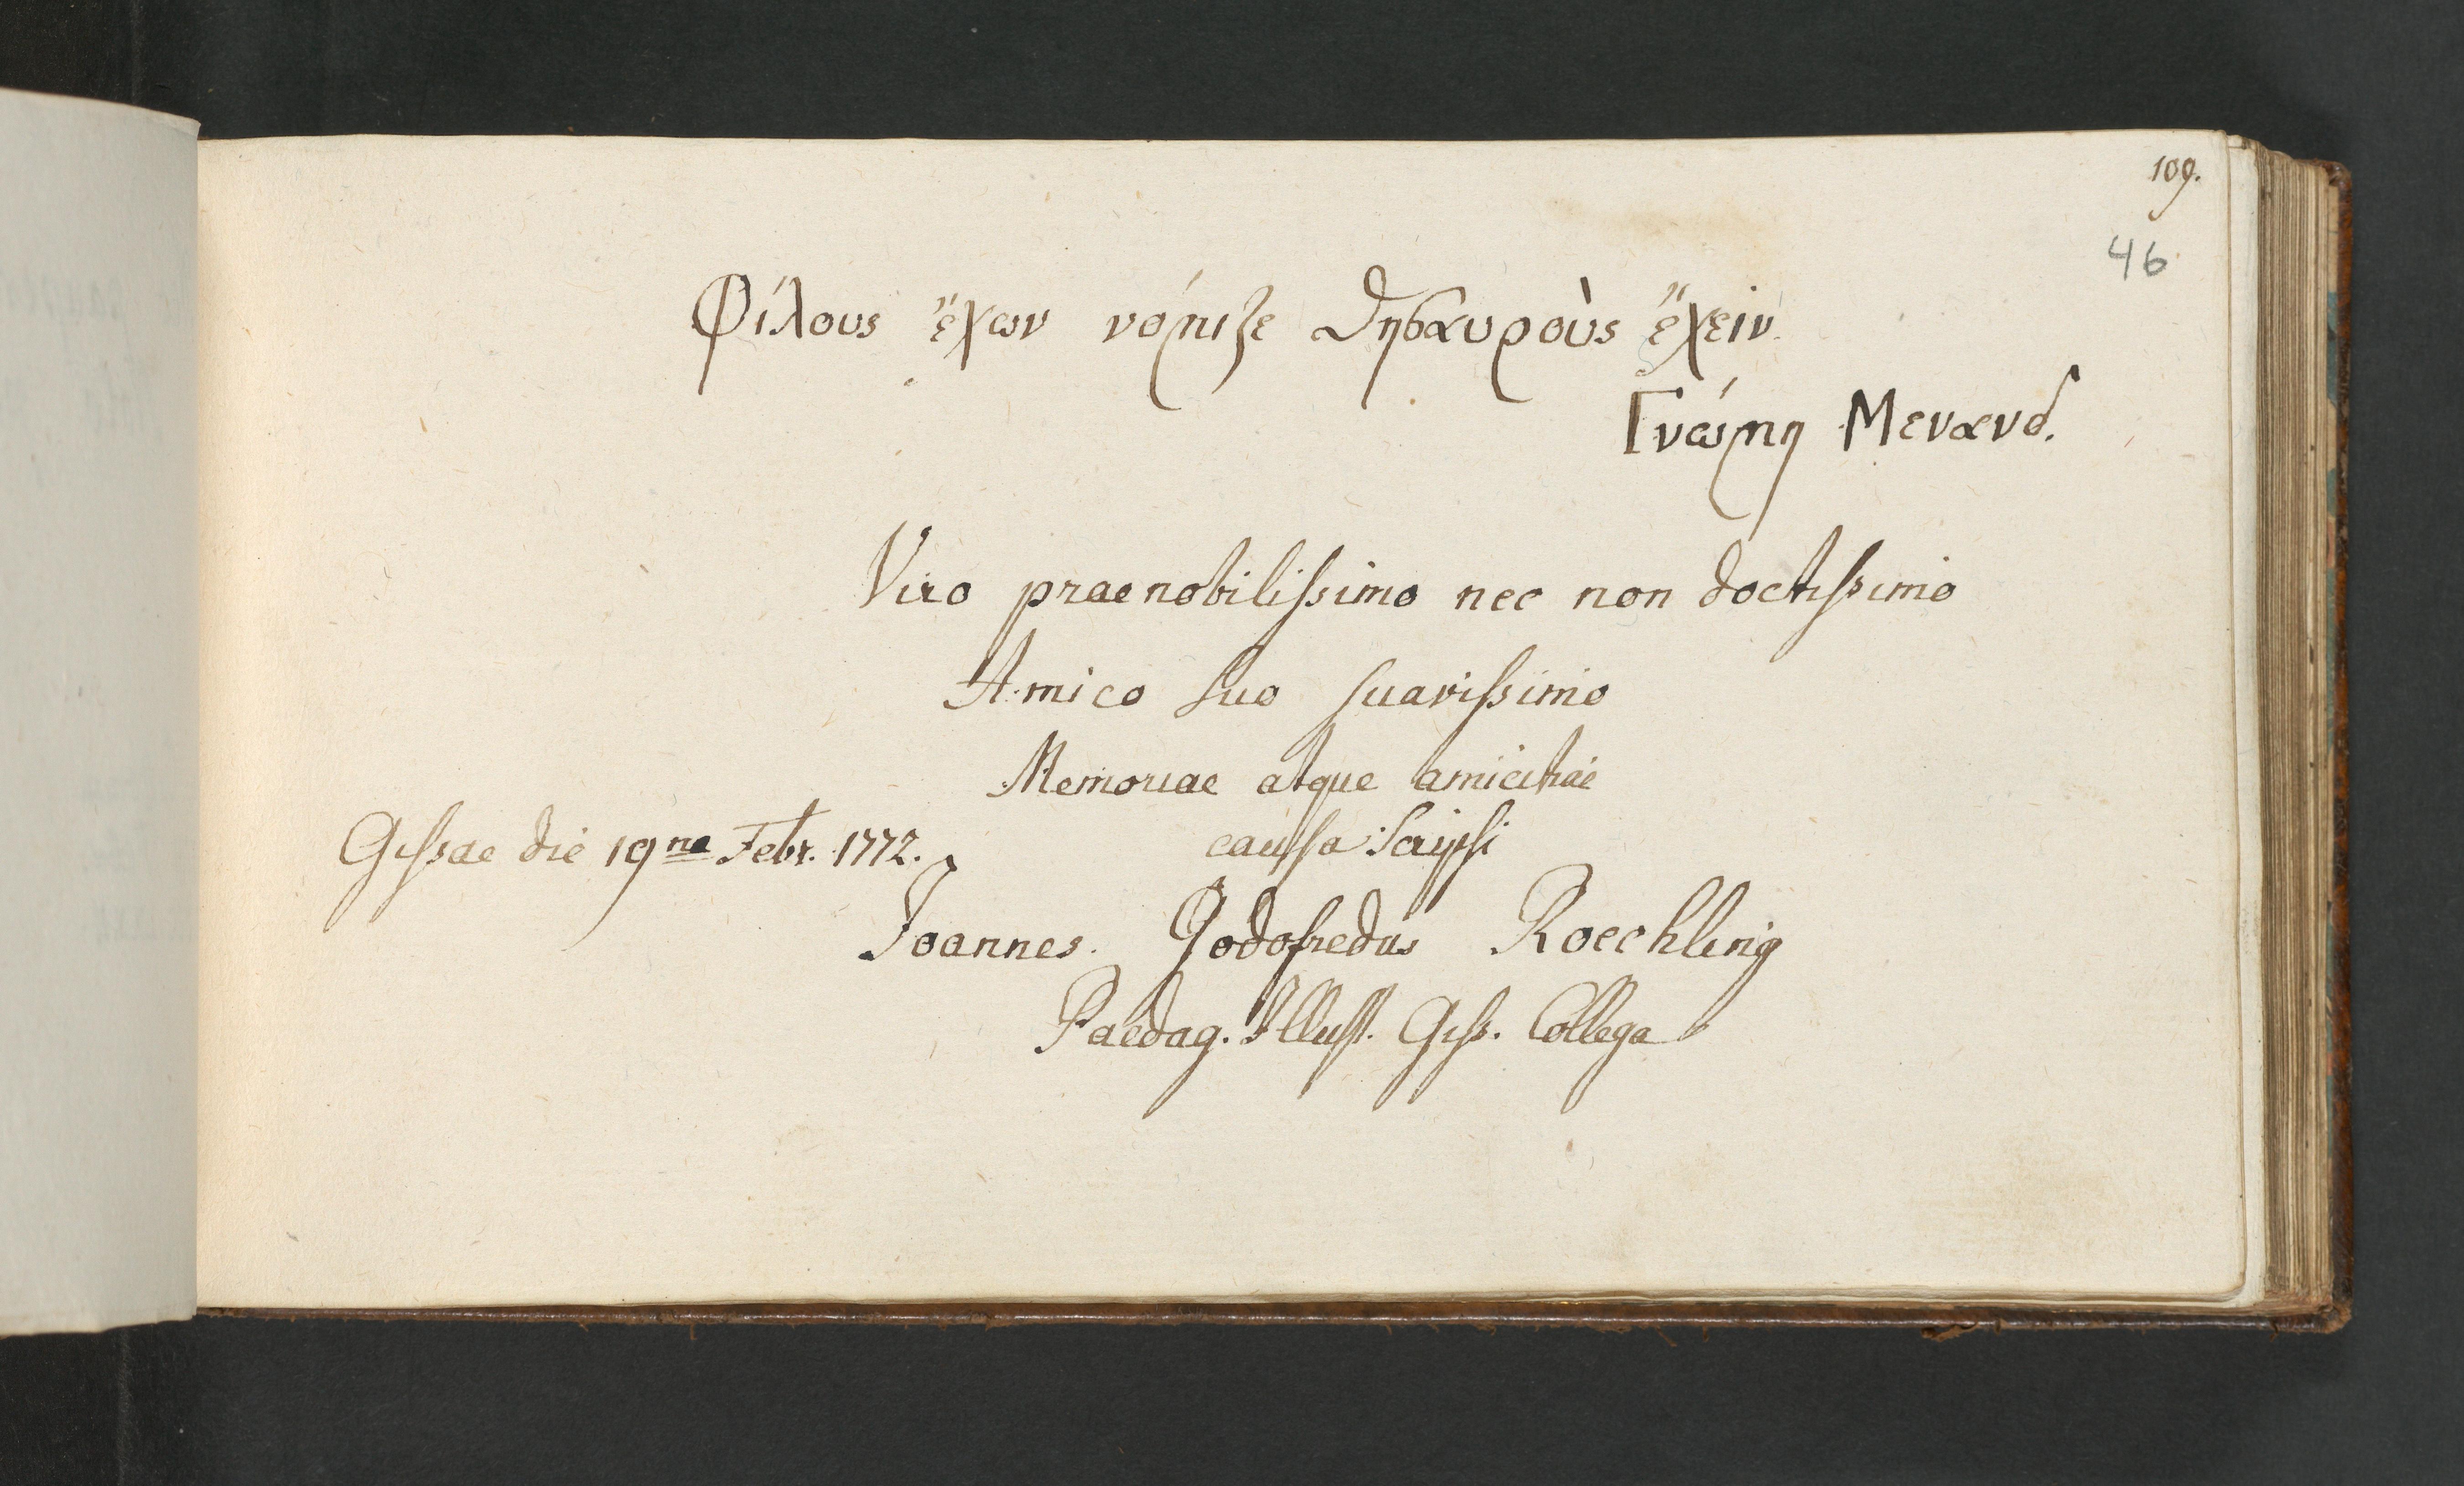 109.
46
Φίλους ἔχων νόμιζε θησαυροὺς ἔχειν.
Γνώμη Μενανδ.
Viro praenobilissimo nec non doctissimo
Amico suo suavissimo
Memoriae atque amicitiae
caussa scripsi
Gissae die 19na Febr. 1772.
Joannes Godofredus Roechling
Paedag. Illust. Giss. Collega